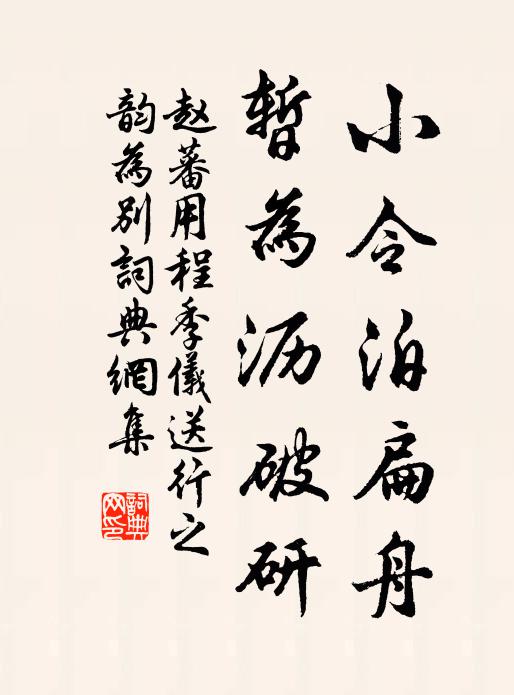 小令泊扁舟
暂為沥破研
赵蕃用程季儀送行之
韵為别詞典網集
詞典网印